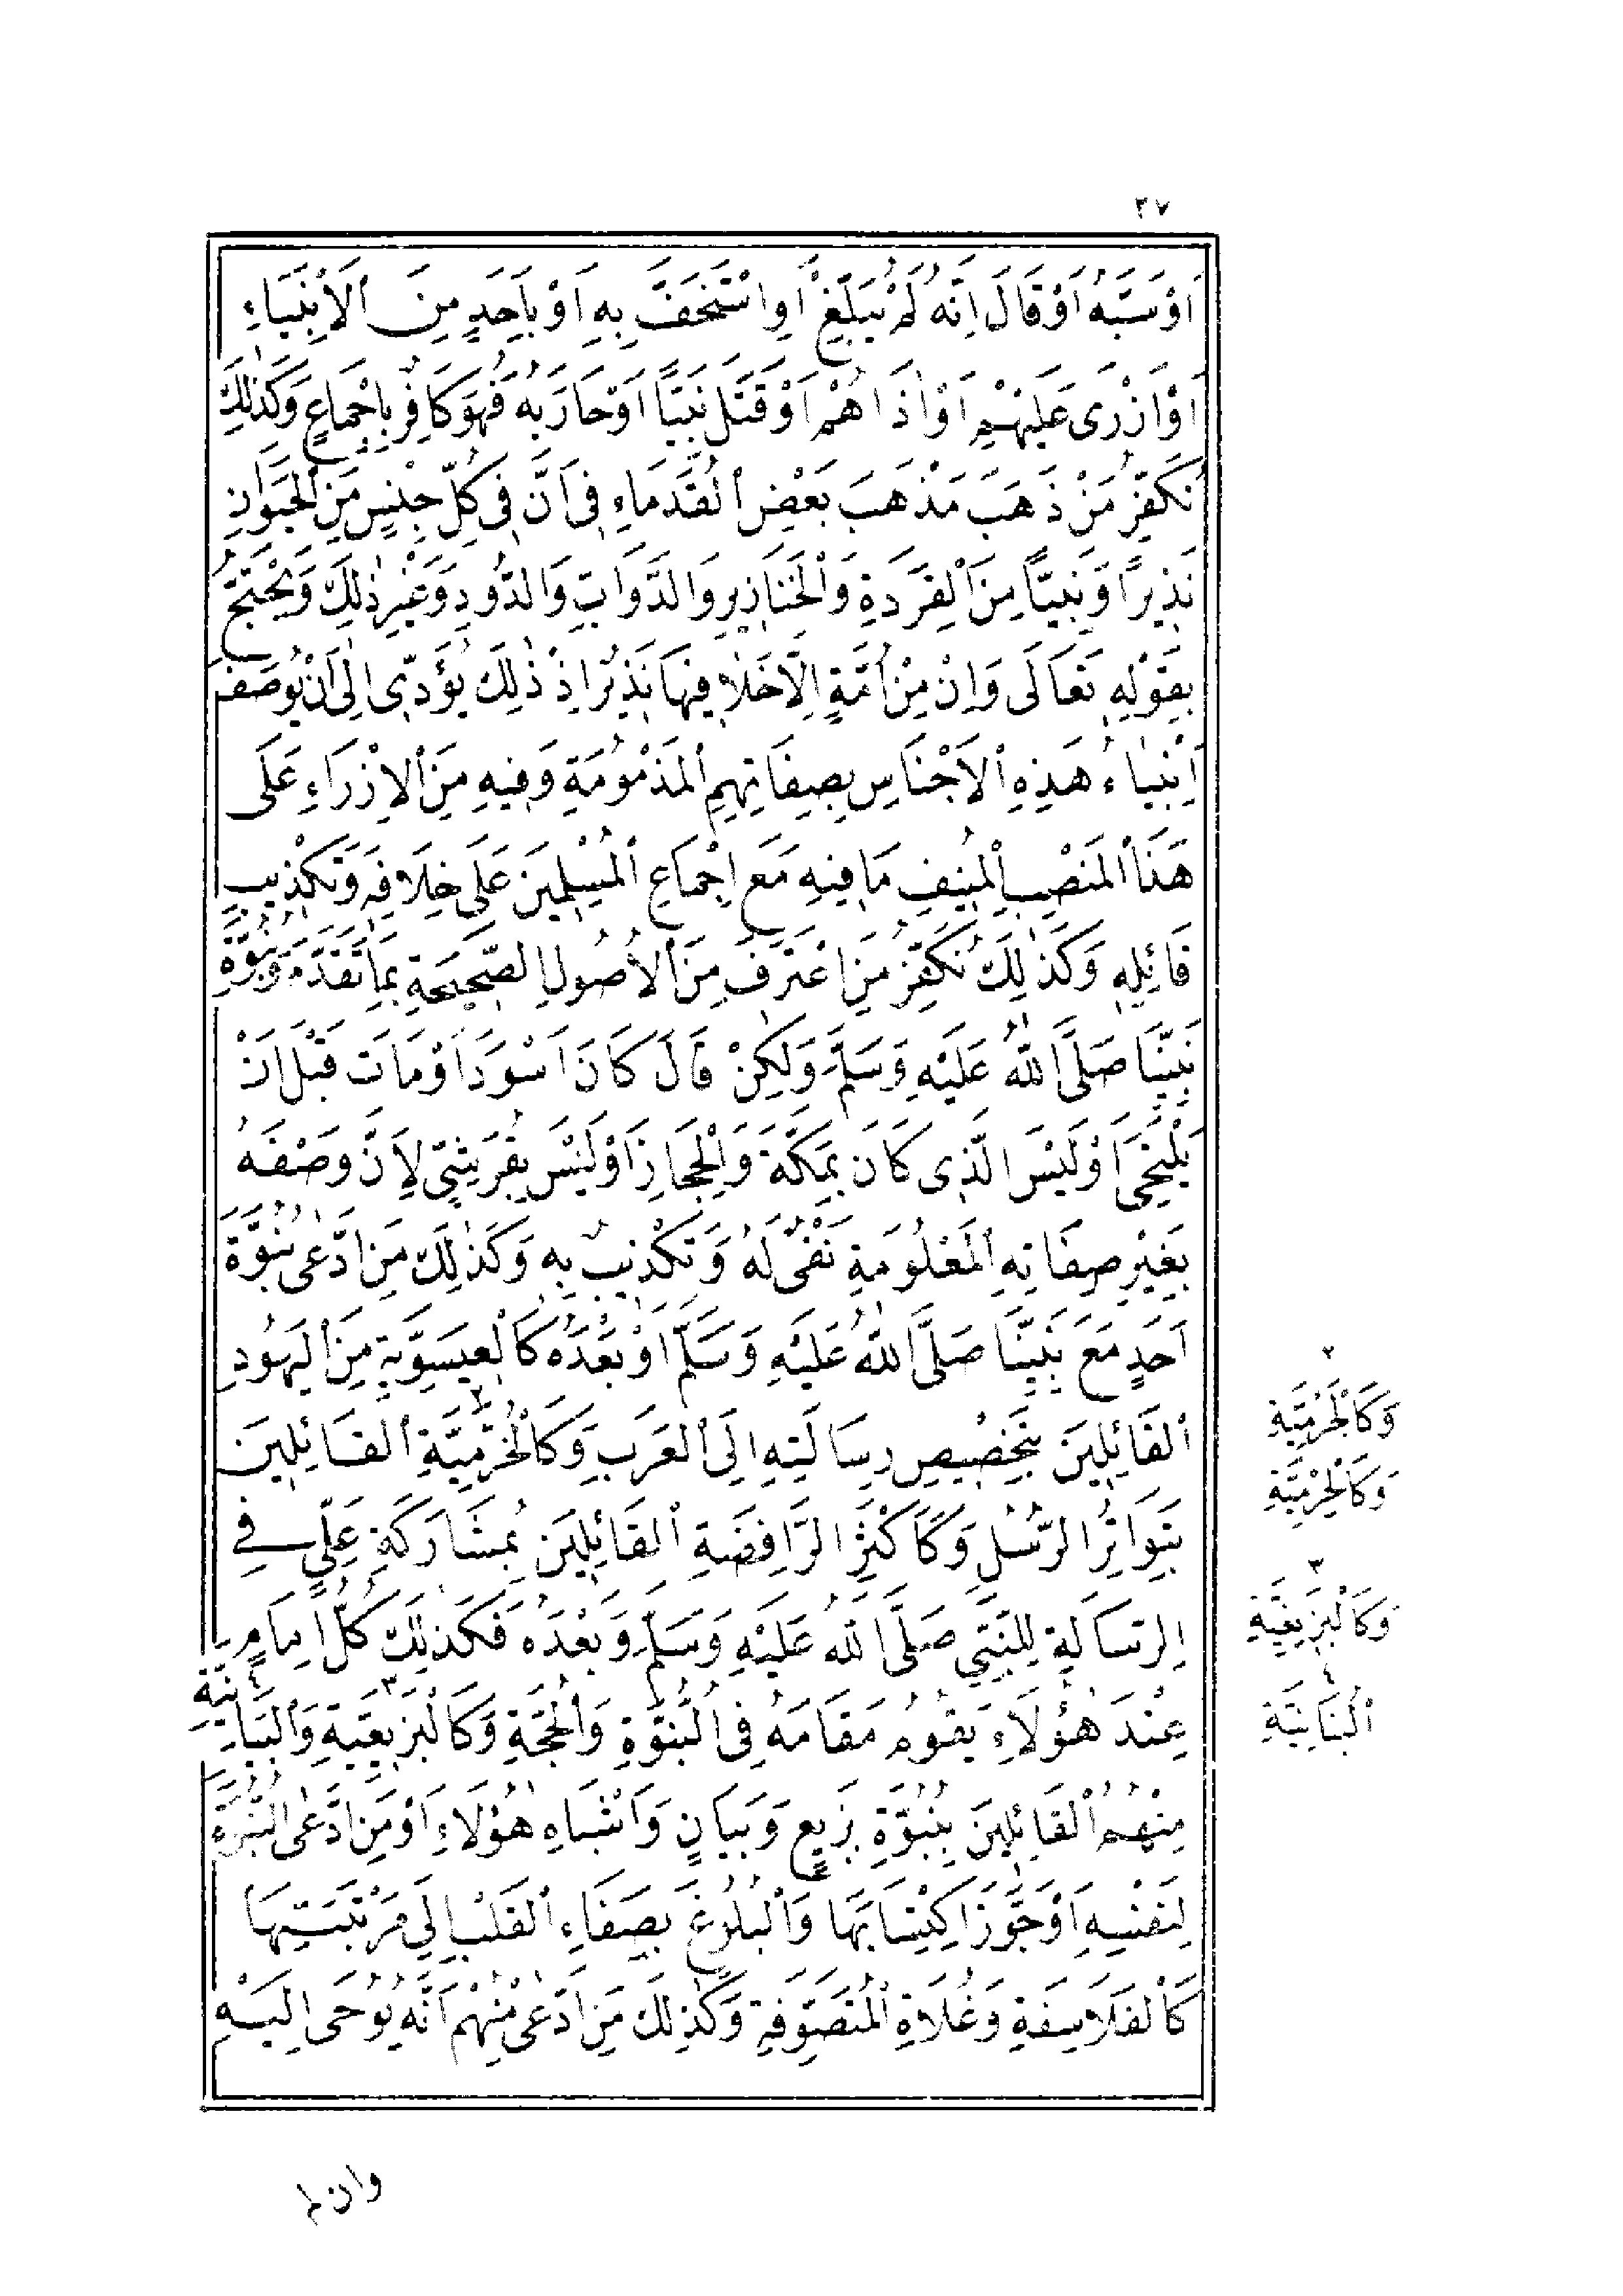 ٢٧
اَوْ سَبَّهُ اَوْ قَالَ اِنَّهُ لَمْ يُبَلِّغْ اَوِ اسْتَخَفَّ بِهِ اَوْ بِاَحَدٍ مِنَ الْاَنْبِيَاءِ
اَوْ اَزْرٰى عَلَيْهِمْ اَوْ اٰذَاهُمْ اَوْ قَتَلَ نَبِيًّا اَوْ حَارَبَهُ فَهُوَ كَافِرٌ بِاِجْمَاعٍ وَكَذٰلِكَ
نُكَفِّرُ مَنْ ذَهَبَ مَذْهَبَ بَعْضِ الْقُدَمَاءِ فِى اَنَّ فِى كُلِّ جِنْسٍ مِنَ الْحَيَوَانِ
نَذِيرًا وَنَبِيًّا مِنَ الْقِرَدَةِ وَالْخَنَازِيرِ وَالدَّوَابِّ وَالدُّودِ وَغَيْرِ ذٰلِكَ وَيَحْتَجُّ
بِقَوْلِهِ تَعَالَى وَاِنْ مِنْ اُمَّةٍ اِلَّا خَلَا فِيهَا نَذِيرٌ اِذْ ذٰلِكَ يُؤَدِّى اِلٰى اَنْ يُوصَفَ
اَنْبِيَاءُ هَذِهِ الْاَجْنَاسِ بِصِفَاتِهِمِ الْمَذْمُومَةِ وَفِيهِ مِنَ الْاِزْرَاءِ عَلَى
هَذَا الْمَنْصِبِ الْمُنِيفِ مَا فِيهِ مَعَ اِجْمَاعِ الْمُسْلِمِينَ عَلَى خِلَافِهِ وَتَكْذِيبِ
قَائِلِهِ وَكَذٰلِكَ نُكَفِّرُ مَنِ اعْتَرَفَ مِنَ الْاُصُولِ الصَّحِيحَةِ بِمَا تَقَدَّمَ وَنُبُوَّةِ
نَبِيِّنَا صَلَّى اللّٰهُ عَلَيْهِ وَسَلَّمَ وَلٰكِنْ قَالَ كَانَ اَسْوَدَ اَوْ مَاتَ قَبْلَ اَنْ
يَلْتَحِىَ اَوْ لَيْسَ الَّذِى كَانَ بِمَكَّةَ وَالْحِجَازِ اَوْ لَيْسَ بِقُرَيْشِىٍّ لِاَنَّ وَصْفَهُ
بِغَيْرِ صِفَاتِهِ الْمَعْلُومَةِ نَفْىٌ لَهُ وَتَكْذِيبٌ بِهِ وَكَذٰلِكَ مَنِ ادَّعٰى نُبُوَّةَ
اَحَدٍ مَعَ نَبِيِّنَا صَلَّى اللّٰهُ عَلَيْهِ وَسَلَّمَ اَوْ بَعْدَهُ كَالْعِيسَوِيَّةِ مِنَ الْيَهُودِ
الْقَائِلِينَ بِتَخْصِيصِ رِسَالَتِهِ اِلَى الْعَرَبِ وَكَالْخُرَّمِيَّةِ ٢ الْقَائِلِينَ
بِتَوَاتُرِ الرُّسُلِ وَكَاَكْثَرِ الرَّافِضَةِ الْقَائِلِينَ بِمُشَارَكَةِ عَلِىٍّ فِى
الرِّسَالَةِ لِلنَّبِىِّ صَلَّى اللّٰهُ عَلَيْهِ وَسَلَّمَ وَبَعْدَهُ فَكَذٰلِكَ كُلُّ اِمَامٍ
عِنْدَ هٰؤُلَاءِ يَقُومُ مَقَامَهُ فِى النُّبُوَّةِ وَالْحُجَّةِ وَكَالْبَزِيعِيَّةِ ٣ وَالْبَيَانِيَّةِ ٤
مِنْهُمُ الْقَائِلِينَ بِنُبُوَّةِ بَزِيعٍ وَبَيَانٍ وَاَشْبَاهِ هٰؤُلَاءِ اَوْ مَنِ ادَّعٰى النُّبُوَّةَ
لِنَفْسِهِ اَوْ جَوَّزَ اكْتِسَابَهَا وَالْبُلُوغَ بِصَفَاءِ الْقَلْبِ اِلَى مَرْتَبَتِهَا
كَالْفَلَاسِفَةِ وَغُلَاةِ الْمُتَصَوِّفَةِ وَكَذٰلِكَ مَنِ ادَّعٰى مِنْهُمْ اَنَّهُ يُوحَى اِلَيْهِ
٢
وَكَالْجَرْمِيَّةِ
وَكَالْحَرْمِيَّةِ
٣
وَكَالْبَزِيغِيَّةِ
٤
الْبُنَانِيَّةِ
وان لم